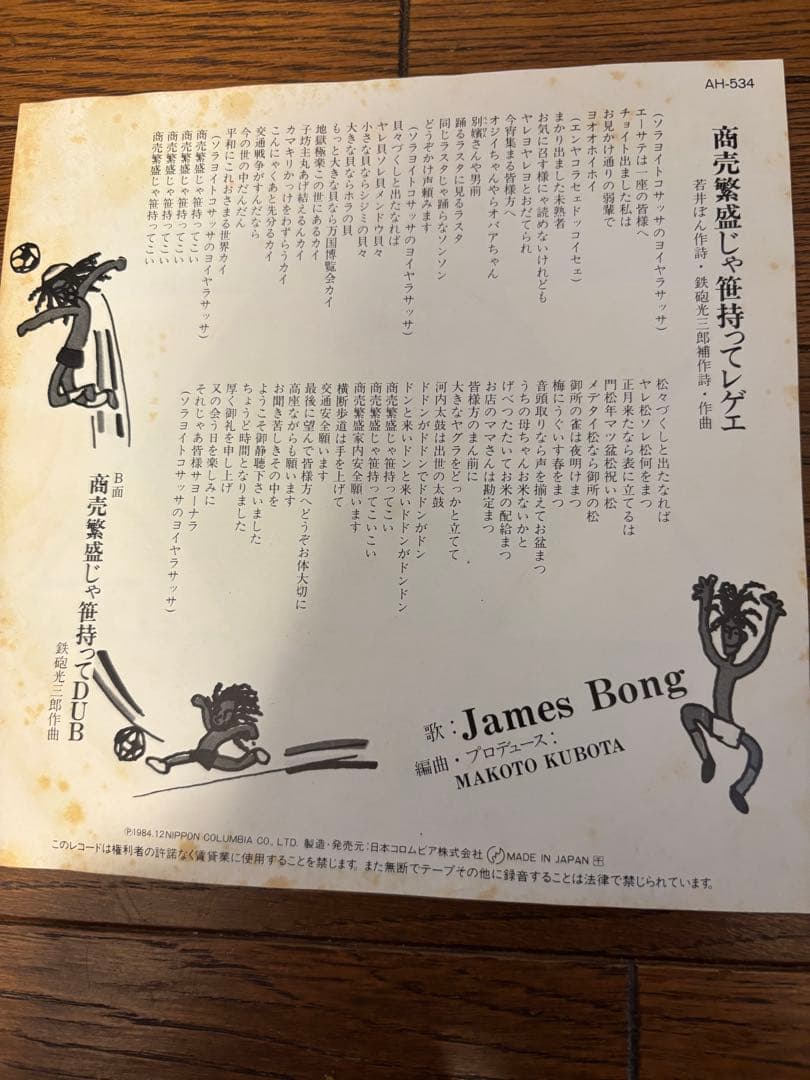 AH-534
商売繁盛じゃ笹持ってレゲエ
若井ぼん作詩・鉄砲光三郎補作詩・作曲
(ソラヨイトコサッサのヨイヤラサッサ)
エーサテは一座の皆様へ
チョイト出ました私は
お見かけ通りの弱輩で
ヨオオホイホイ
(エンヤコラセェドッコイセェ)
まかり出ました未熟者
お気に召す様にゃ読めないけれども
ヤレヨヤレヨとおだてられ
今宵集まる皆様方へ
オジイちゃんやらオバアちゃん
別嬪さんや男前
踊るラスタに見るラスタ
同じラスタじゃ踊らなソンソン
どうぞかけ声頼みます
(ソラヨイトコサッサのヨイヤラサッサ)
貝々づくしと出たなれば
ヤレ貝ソレ貝メンドウ貝々
小さな貝ならシジミの貝々
大きな貝ならホラの貝
もっと大きな貝なら万国博覧会カイ
地獄極楽この世にあるカイ
子坊主丸あげ結えるんカイ
カマキリかっけをわずらうカイ
こんにゃくあと先分るカイ
交通戦争がすんだなら
今の世の中だんだん
平和にこれおさまる世界カイ
(ソラヨイトコサッサのヨイヤラサッサ)
商売繁盛じゃ笹持ってこい
商売繁盛じゃ笹持ってこい
商売繁盛じゃ笹持ってこい
商売繁盛じゃ笹持ってこい
松々づくしと出たなれば
ヤレ松ソレ松何をまつ
正月来たなら表に立てるは
門松年マツ盆松祝い松
メデタイ松なら御所の松
御所の雀は夜明けまつ
梅にうぐいす春をまつ
音頭取りなら声を揃えてお盆まつ
うちの母ちゃんお米ないかと
げべつたたいてお米の配給まつ
お店のママさんは勘定まつ
皆様方のまん前に
大きなヤグラをどっかと立てて
河内太鼓は出世の太鼓
ドドンがドンでドドンがドン
ドンと来いドンと来いドドンがドンドン
商売繁盛じゃ笹持ってこい
商売繁盛じゃ笹持ってこいこい
商売繁盛家内安全願います
横断歩道は手を上げて
交通安全願います
最後に望んで皆様方へどうぞお体大切に
高座ながらも願います
お聞き苦しきその中を
ようこそ御静聴下さいました
ちょうど時間となりました
厚く御礼を申し上げ
又の会う日を楽しみに
それじゃあ皆様サヨーナラ
(ソラヨイトコサッサのヨイヤラサッサ)
B面
商売繁盛じゃ笹持ってDUB
鉄砲光三郎作曲
歌:James Bong
編曲・プロデュース:
MAKOTO KUBOTA
Ⓟ1984.12 NIPPON COLUMBIA CO., LTD. 製造・発売元:日本コロムビア株式会社 MADE IN JAPAN
このレコードは権利者の許諾なく賃貸業に使用することを禁じます。また無断でテープその他に録音することは法律で禁じられています。